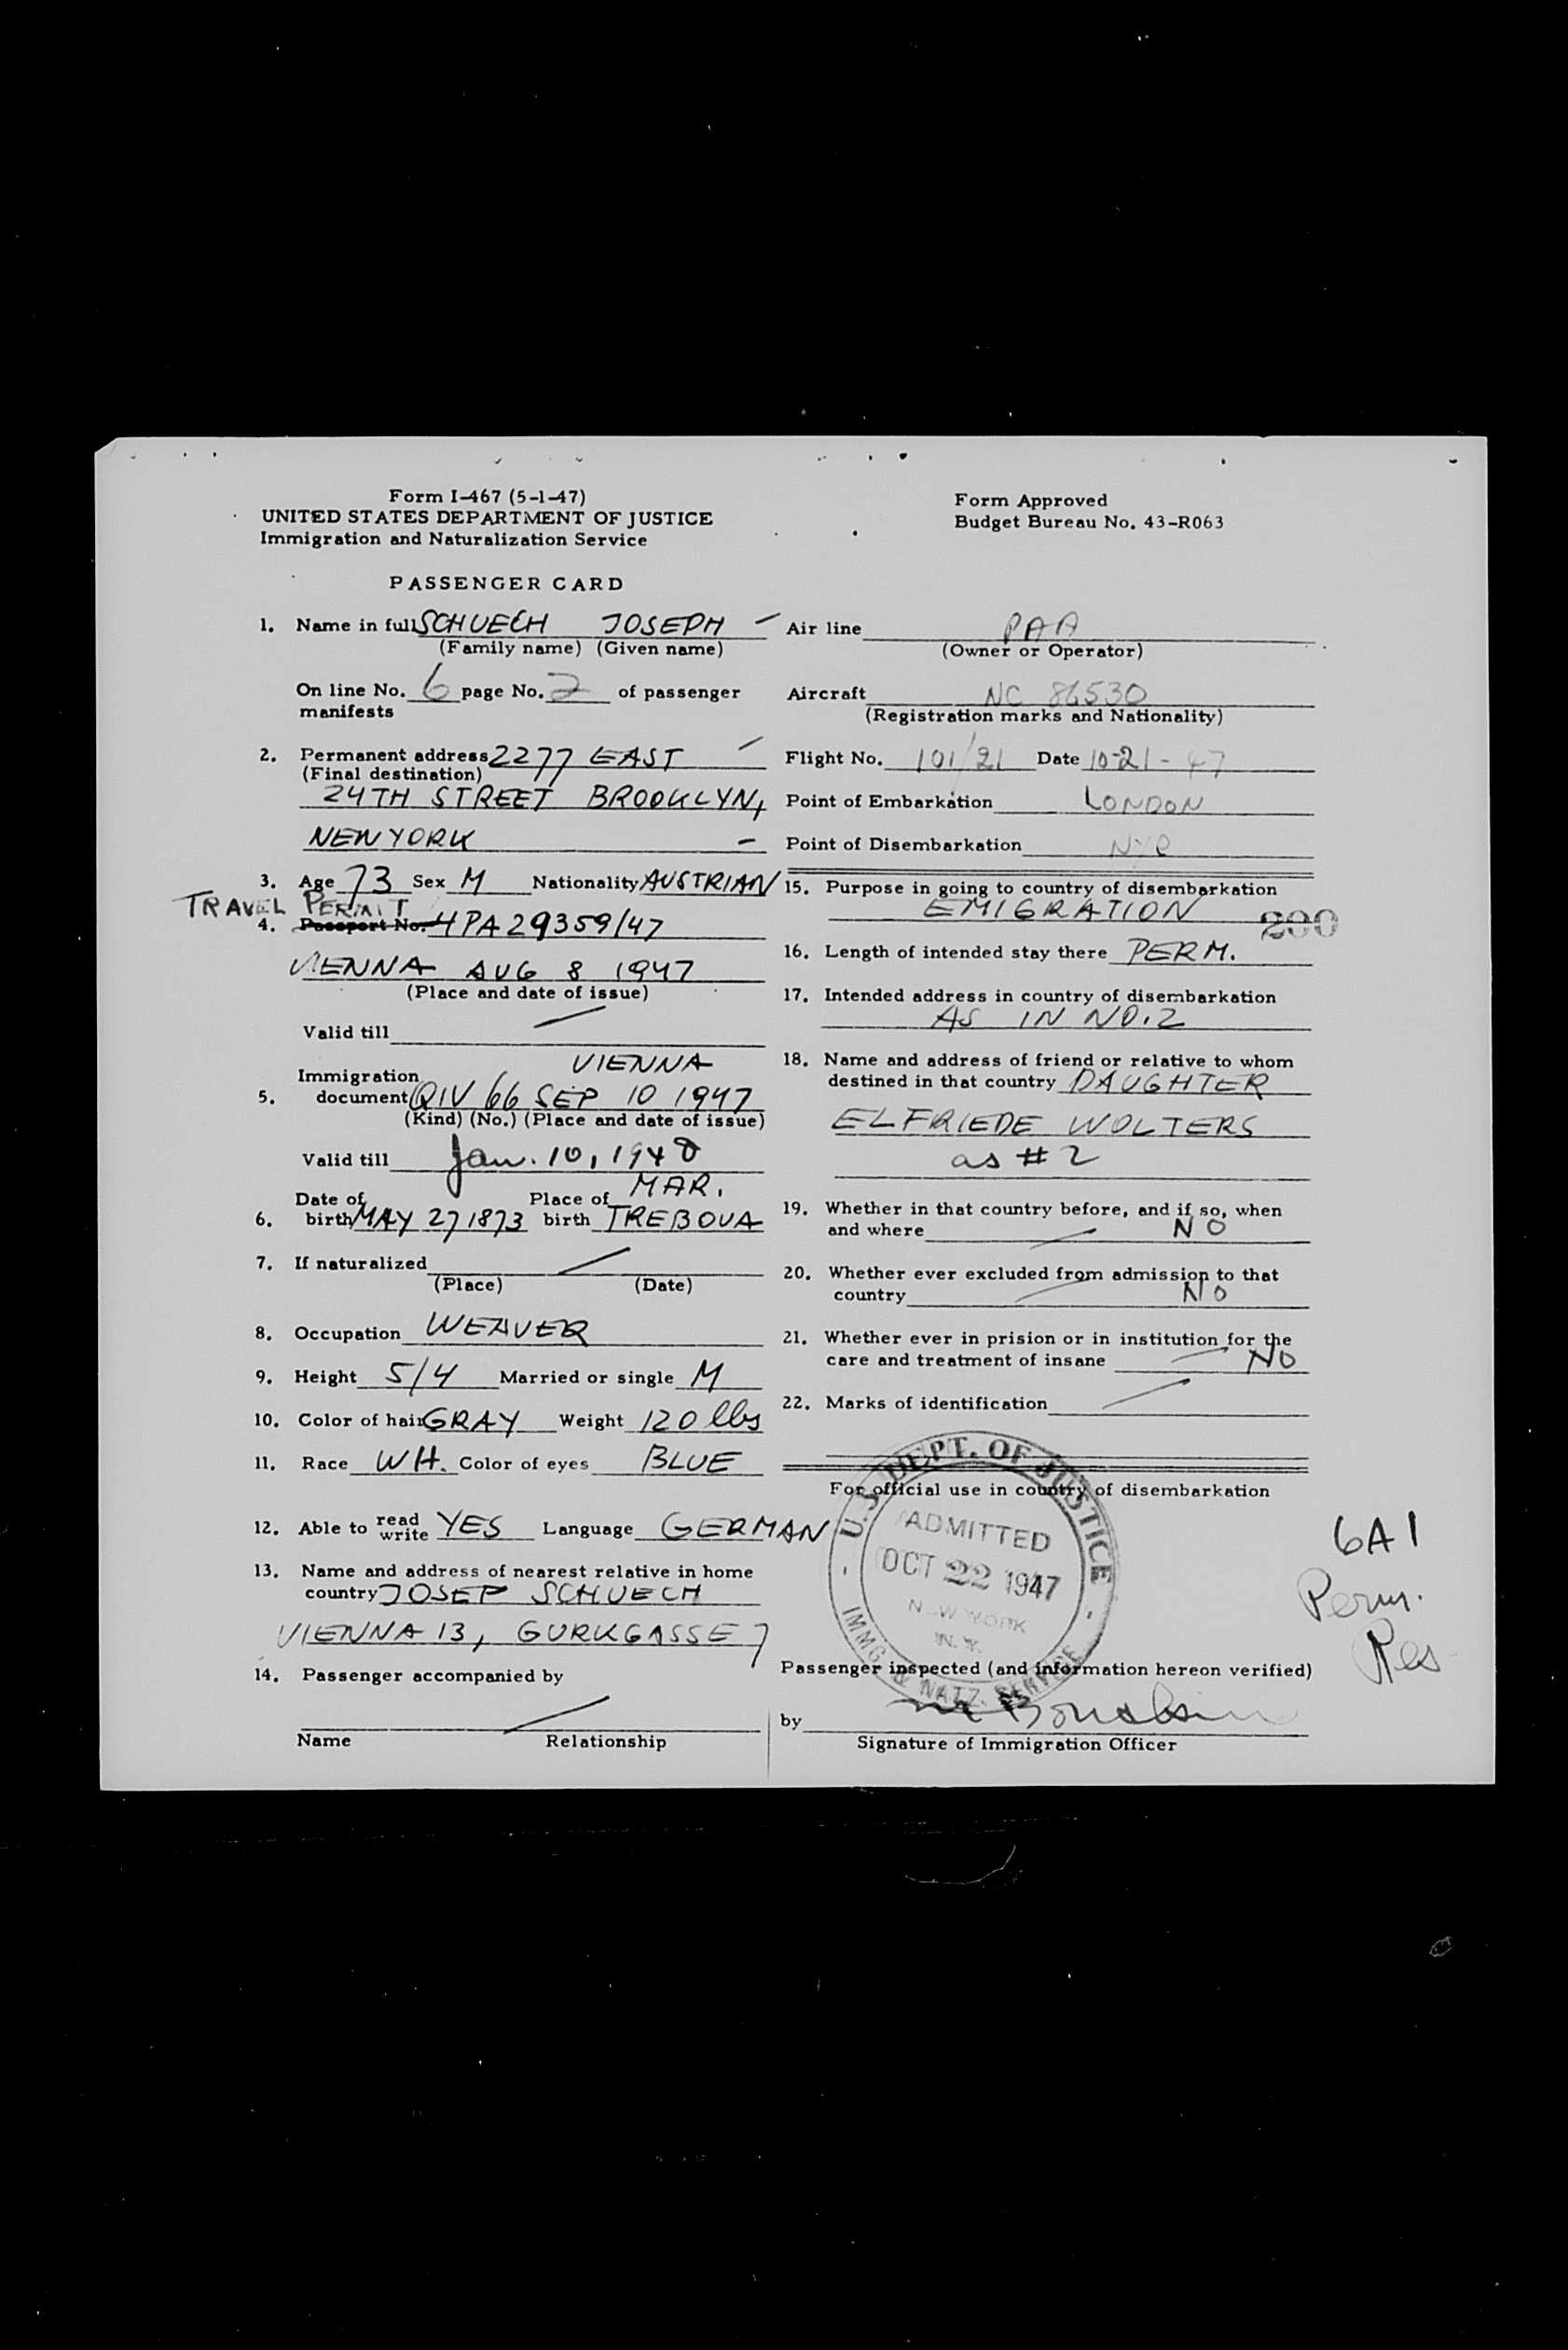 Form I-467 (5-1-47)
UNITED STATES DEPARTMENT OF JUSTICE
Immigration and Naturalization Service
Form Approved
Budget Bureau No. 43-R063
PASSENGER CARD
1. Name in full SCHUECH JOSEPH
(Family name) (Given name)
On line No. 6 page No. 2 of passenger
manifests
2. Permanent address 2277 EAST
(Final destination)
24TH STREET BROOKLYN,
NEW YORK
3. Age 73 Sex M Nationality AUSTRIAN
TRAVEL PERMIT
4. Passport No. 4PA29359/47
VIENNA AUG 8 1947
(Place and date of issue)
Valid till
VIENNA
Immigration
5. document QIV 66 SEP 10 1947
(Kind) (No.) (Place and date of issue)
Valid till Jan. 10, 1948
MAR.
Date of Place of
6. birth MAY 27 1873 birth TREBOVA
7. If naturalized
(Place) (Date)
8. Occupation WEAVER
9. Height 5/4 Married or single M
10. Color of hair GRAY Weight 120 lbs
11. Race WH. Color of eyes BLUE
12. Able to read write YES Language GERMAN
13. Name and address of nearest relative in home
country JOSEP SCHUECH
VIENNA 13, GURKGASSE 7
14. Passenger accompanied by
Name Relationship
Air line PAA
(Owner or Operator)
Aircraft NC 86530
(Registration marks and Nationality)
Flight No. 101/21 Date 10-21-47
Point of Embarkation LONDON
Point of Disembarkation
15. Purpose in going to country of disembarkation
EMIGRATION
200
16. Length of intended stay there PERM.
17. Intended address in country of disembarkation
AS IN NO. 2
18. Name and address of friend or relative to whom
destined in that country DAUGHTER
ELFRIEDE WOLTERS
as # 2
19. Whether in that country before, and if so, when
and where NO
20. Whether ever excluded from admission to that
country NO
21. Whether ever in prision or in institution for the
care and treatment of insane NO
22. Marks of identification
For official use in country of disembarkation
U.S. DEPT. OF JUSTICE
ADMITTED
OCT 22 1947
NEW YORK
N.Y.
IMMG. & NATZ. SERVICE
6A1
Perm.
Res
Passenger inspected (and information hereon verified)
by
Signature of Immigration Officer